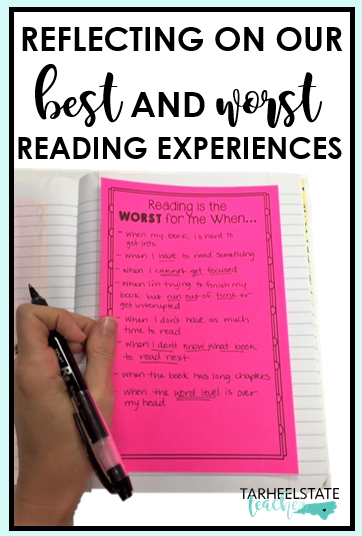 REFLECTING ON OUR
best AND worst
READING EXPERIENCES
Reading is the
WORST for me When...
- when my book is hard to
get into
- when I have to read something
- when I cannot get focused
- when I'm trying to finish my
book but run out of time or
get interupted
- when I don't have as much
time to read
- when I don't know what book
to read next
- when the book has long chapters
- when the word level is over
my head
TARHEELSTATE
teacher